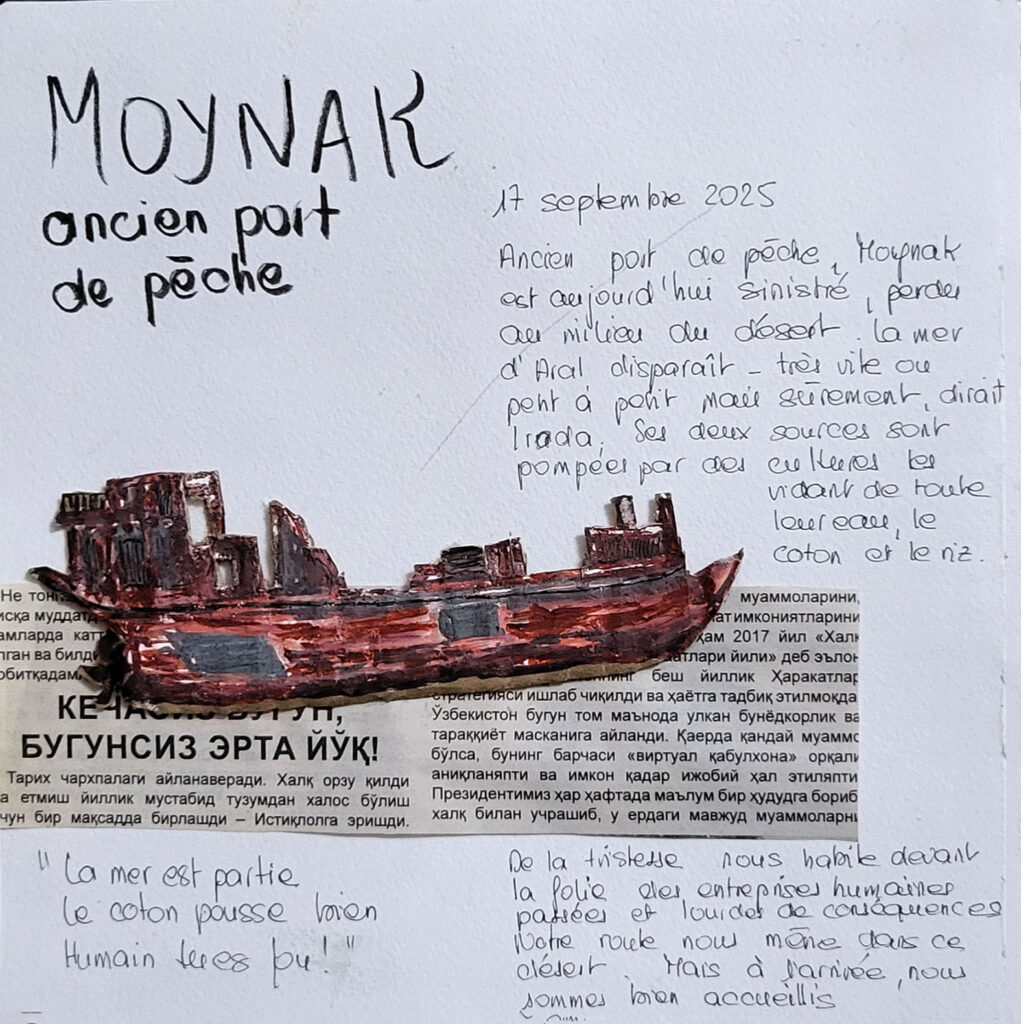 MOYNAK
ancien port
de pêche
17 septembre 2025
Ancien port de pêche, Moynak
est aujourd'hui sinistré, perdu
au milieu du désert. La mer
d'Aral disparaît - très vite ou
petit à petit mais sûrement, dirait
Irada. Ses deux sources sont
pompées par des cultures les
vidant de toute
leur eau, le
coton et le riz.
Не
муддат
амларда
ган ва билди
КЕЧАСИЗ БУГУН,
БУГУНСИЗ ЭРТА ЙЎҚ!
Тарих чархпалаги айланаверади. Халқ орзу қилди
а етмиш йиллик мустабид тузумдан халос бўлиш
чун бир мақсадда бирлашди – Истиқлолга эришди.
муаммоларини,
имкониятларини
ҳам 2017 йил «Халқ
йили» деб эълон
беш йиллик Ҳаракатлар
стратегияси ишлаб чиқилди ва ҳаётга тадбиқ этилмоқда.
Ўзбекистон бугун том маънода улкан бунёдкорлик ва
тараққиёт масканига айланди. Қаерда қандай муаммо
бўлса, бунинг барчаси «виртуал қабулхона» орқали
аниқланяпти ва имкон қадар ижобий ҳал этиляпти
Президентимиз ҳар ҳафтада маълум бир ҳудудга бориб
халқ билан учрашиб, у ердаги мавжуд муаммоларни
" La mer est partie
Le coton pousse bien
Humain tu es fou! "
De la tristesse nous habite devant
la folie des entreprises humaines
passées et lourdes de conséquences
Notre route nous mène dans ce
désert. Mais à l'arrivée, nous
sommes bien accueillis